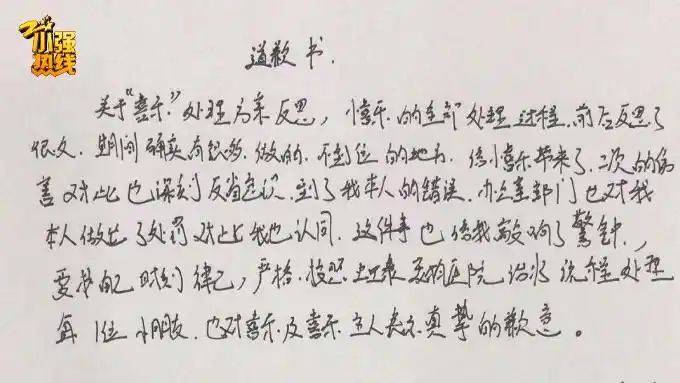 小强热线
道歉书.
关于"喜乐"处理为来反思，喜乐的全部处理过程，前后反思了
很久.期间确实有很多.做的.不到位的地方.给喜乐带来了.二次的伤
害 对此也深刻反省意识.到了我本人的错误.办公室部门也对我
本人做出了处罚 对此我也认同.这件事也给我敲响了警钟.，
要求自己时刻律己，严格.按照 宠物医院给出流程处理
每1位小朋友.也对喜乐及喜乐主人表示真挚的歉意。